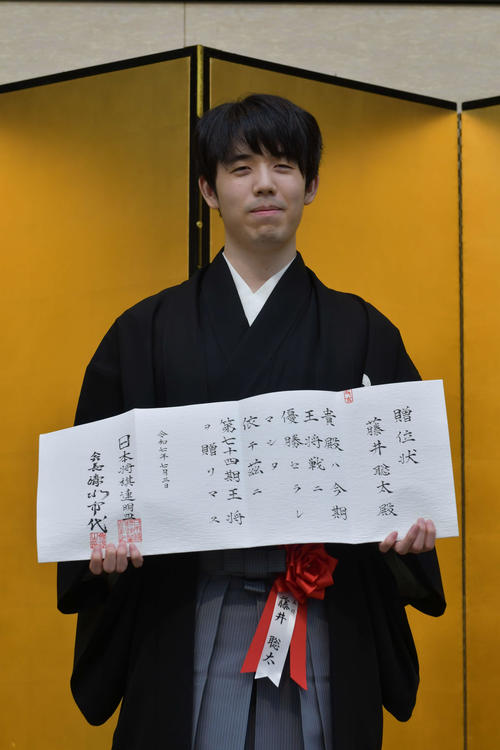 贈位状
藤井聡太殿
貴殿ハ今期
王将戦ニ
優勝セラレ
マシタ
依テ茲ニ
第七十四期王将
ヲ贈リマス
令和七年七月二日
日本将棋連盟
会長清水市代
藤井 聡太